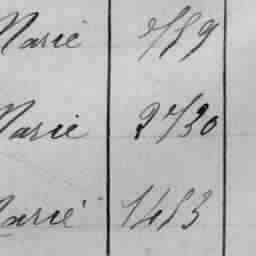 Marie 759
Marie 2730
Marie 1453